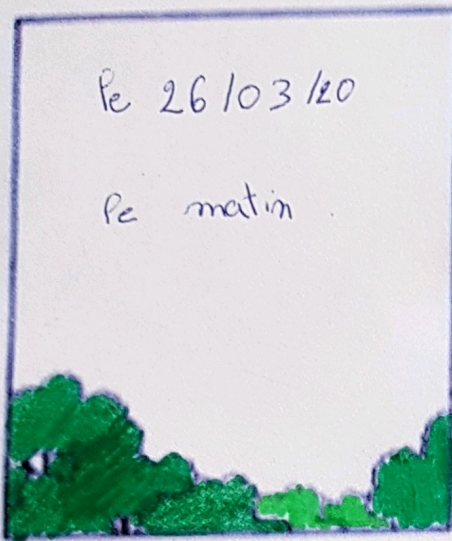 le 26/03/20
le matin.